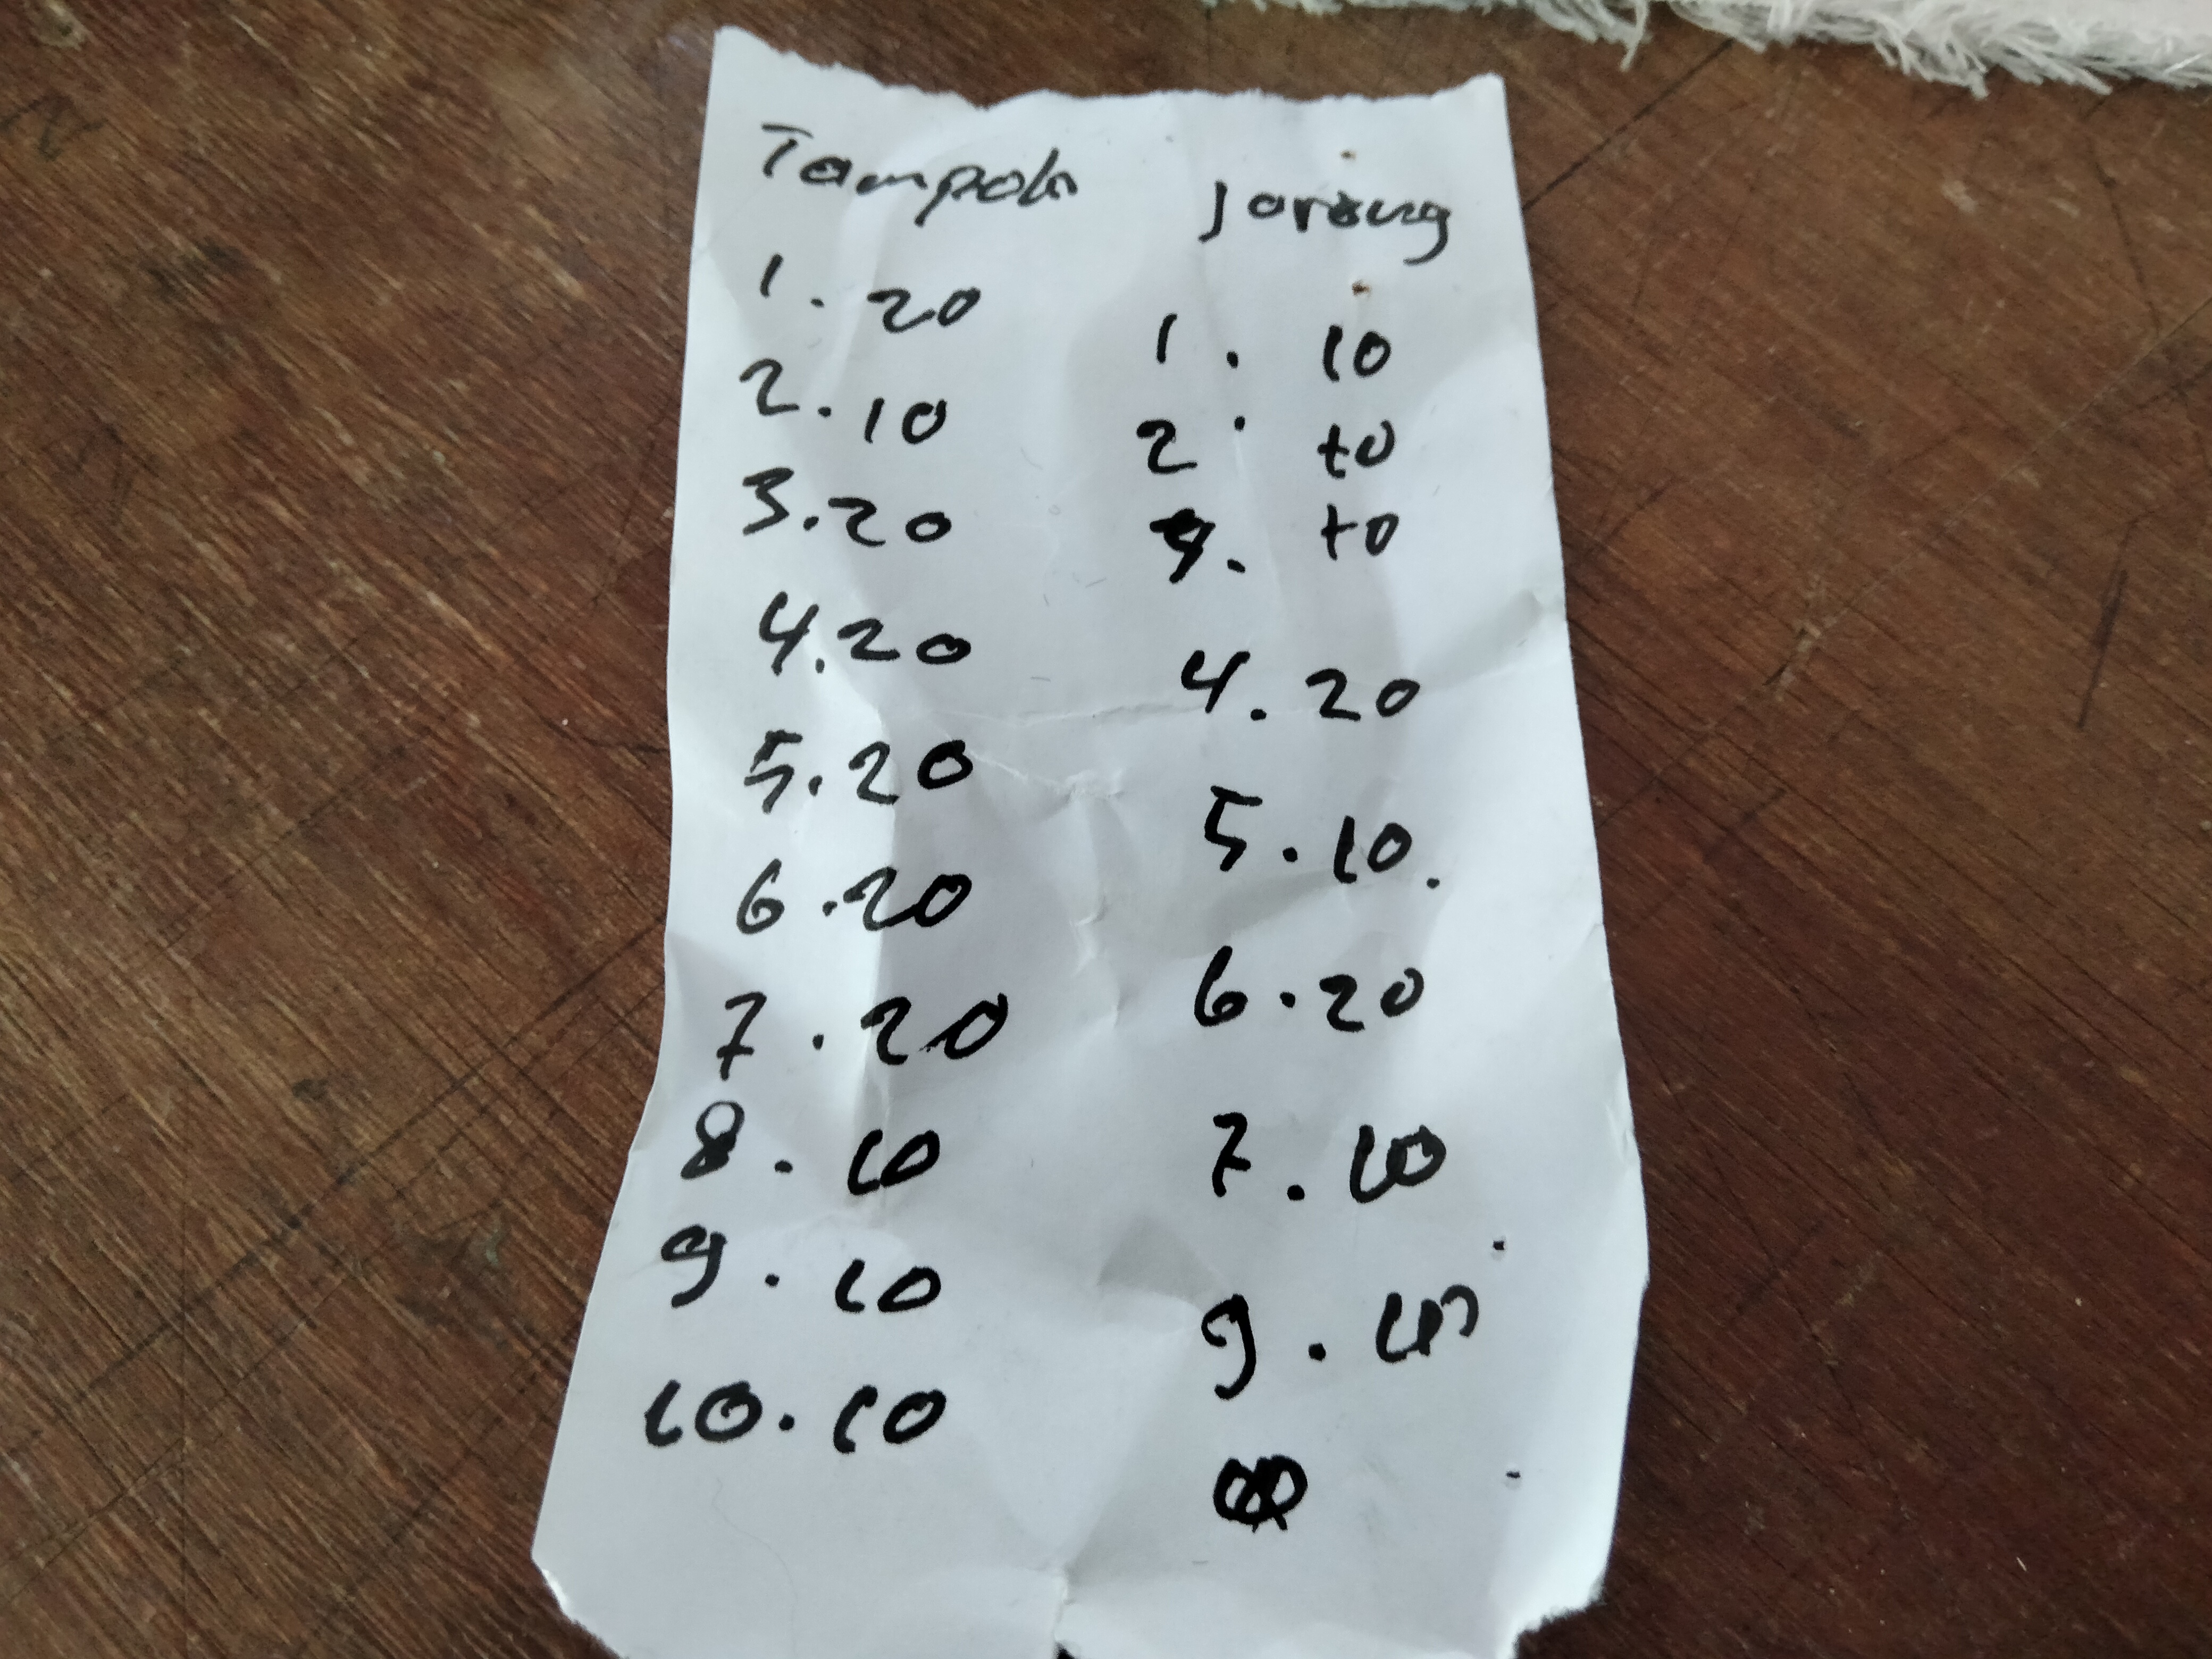 Tampok
1. 20
2. 10
3. 20
4. 20
5. 20
6. 20
7. 20
8. 10
9. 10
10. 10
Jarang
1. 10
2. 10
10
4. 20
5. 10.
6. 20
7. 10
9.